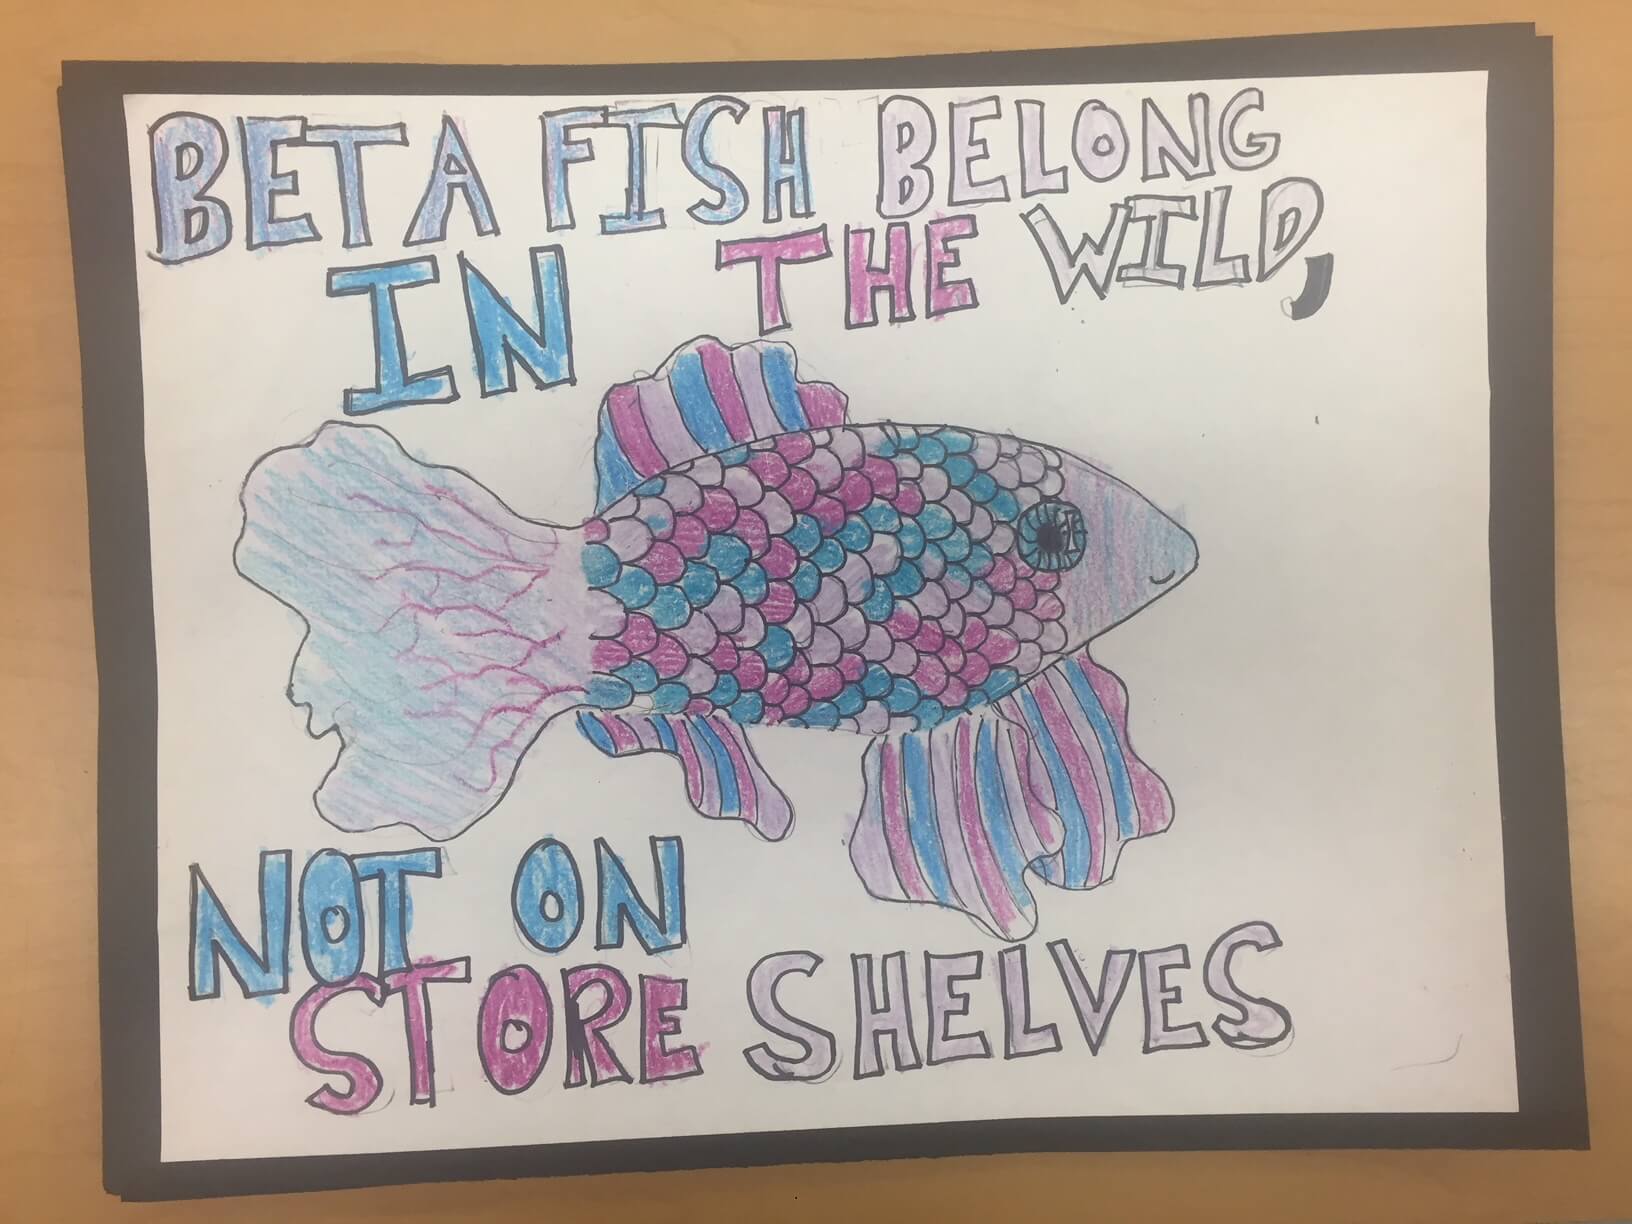 BETA FISH BELONG
IN THE WILD,
NOT ON
STORE SHELVES